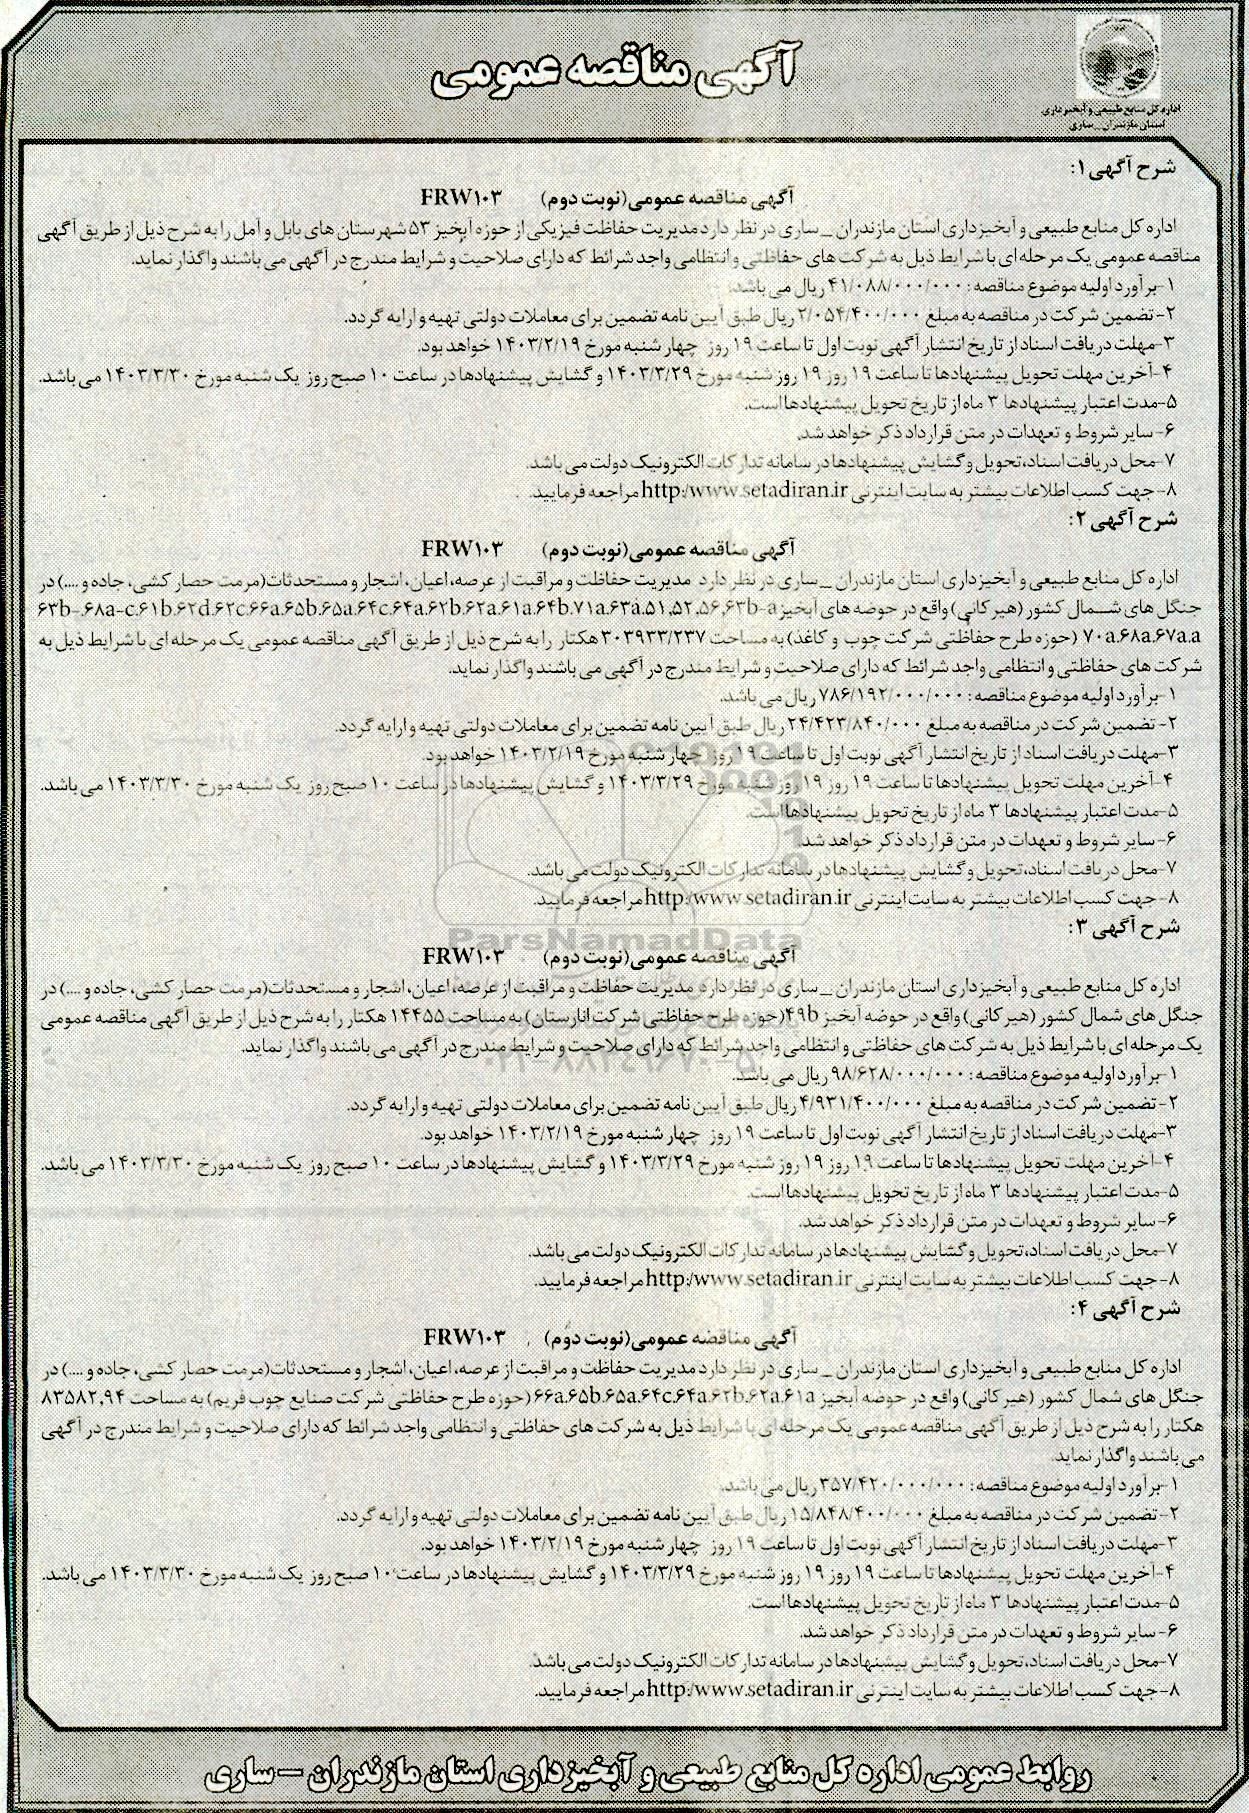 آگهی مناقصه عمومی
اداره کل منابع طبیعی و آبخیزداری
استان مازندران _ ساری
شرح آگهی ۱:
آگهی مناقصه عمومی (نوبت دوم) FRW۱۰۳
اداره کل منابع طبیعی و آبخیزداری استان مازندران _ ساری در نظر دارد مدیریت حفاظت فیزیکی از حوزه آبخیز ۵۳ شهرستان های بابل و آمل را به شرح ذیل از طریق آگهی
مناقصه عمومی یک مرحله ای با شرایط ذیل به شرکت های حفاظتی و انتظامی واجد شرائط که دارای صلاحیت و شرایط مندرج در آگهی می باشند واگذار نماید.
۱-برآورد اولیه موضوع مناقصه: ۴۱/۰۸۸/۰۰۰/۰۰۰ ریال می باشد.
۲- تضمین شرکت در مناقصه به مبلغ ۲/۰۵۴/۴۰۰/۰۰۰ ریال طبق آیین نامه تضمین برای معاملات دولتی تهیه و ارایه گردد.
۳-مهلت دریافت اسناد از تاریخ انتشار آگهی نوبت اول تا ساعت ۱۹ روز چهار شنبه مورخ ۱۴۰۳/۲/۱۹ خواهد بود.
۴-آخرین مهلت تحویل پیشنهادها تا ساعت ۱۹ روز ۱۹ روز شنبه مورخ ۱۴۰۳/۳/۲۹ و گشایش پیشنهادها در ساعت ۱۰ صبح روز یک شنبه مورخ ۱۴۰۳/۳/۳۰ می باشد.
۵-مدت اعتبار پیشنهادها ۳ ماه از تاریخ تحویل پیشنهادها است.
۶-سایر شروط و تعهدات در متن قرارداد ذکر خواهد شد.
۷-محل دریافت اسناد، تحویل و گشایش پیشنهادها در سامانه تدارکات الکترونیک دولت می باشد.
۸-جهت کسب اطلاعات بیشتر به سایت اینترنتی http:/www.setadiran.ir مراجعه فرمایید.
شرح آگهی ۲:
آگهی مناقصه عمومی (نوبت دوم) FRW۱۰۳
اداره کل منابع طبیعی و آبخیزداری استان مازندران _ ساری در نظر دارد مدیریت حفاظت و مراقبت از عرصه، اعیان، اشجار و مستحدثات(مرمت حصار کشی، جاده و ....) در
جنگل های شمال کشور (هیرکانی) واقع در حوضه های آبخیز ۶۳b-۶۸a-c.۶۱b.۶۲d.۶۲c.۶۶a.۶۵b.۶۵a.۶۴c.۶۴a.۶۲b.۶۲a.۶۱a.۶۴b.۷۱a.۶۳a.۵۱,۵۲,۵۶,۶۳b-a
۷۰a.۶۸a.۶۷a.a (حوزه طرح حفاظتی شرکت چوب و کاغذ) به مساحت ۳۰۳۹۳۳/۲۳۷ هکتار را به شرح ذیل از طریق آگهی مناقصه عمومی یک مرحله ای با شرایط ذیل به
شرکت های حفاظتی و انتظامی واجد شرائط که دارای صلاحیت و شرایط مندرج در آگهی می باشند واگذار نماید.
۱-برآورد اولیه موضوع مناقصه: ۷۸۶/۱۹۲/۰۰۰/۰۰۰ ریال می باشد.
۲- تضمین شرکت در مناقصه به مبلغ ۲۴/۴۲۳/۸۴۰/۰۰۰ ریال طبق آیین نامه تضمین برای معاملات دولتی تهیه و ارایه گردد.
۳-مهلت دریافت اسناد از تاریخ انتشار آگهی نوبت اول تا ساعت ۱۹ روز چهار شنبه مورخ ۱۴۰۳/۲/۱۹ خواهد بود.
۴-آخرین مهلت تحویل پیشنهادها تا ساعت ۱۹ روز ۱۹ روز شنبه مورخ ۱۴۰۳/۳/۲۹ و گشایش پیشنهادها در ساعت ۱۰ صبح روز یک شنبه مورخ ۱۴۰۳/۳/۳۰ می باشد.
۵-مدت اعتبار پیشنهادها ۳ ماه از تاریخ تحویل پیشنهادها است.
۶-سایر شروط و تعهدات در متن قرارداد ذکر خواهد شد.
۷-محل دریافت اسناد، تحویل و گشایش پیشنهادها در سامانه تدارکات الکترونیک دولت می باشد.
۸-جهت کسب اطلاعات بیشتر به سایت اینترنتی http:/www.setadiran.ir مراجعه فرمایید.
ParsNamadData
شرح آگهی ۳:
آگهی مناقصه عمومی (نوبت دوم) FRW۱۰۳
اداره کل منابع طبیعی و آبخیزداری استان مازندران _ ساری در نظر دارد مدیریت حفاظت و مراقبت از عرصه، اعیان، اشجار و مستحدثات(مرمت حصار کشی، جاده و ....) در
جنگل های شمال کشور (هیرکانی) واقع در حوضه آبخیز ۴۹b (حوزه طرح حفاظتی شرکت انارستان) به مساحت ۱۴۴۵۵ هکتار را به شرح ذیل از طریق آگهی مناقصه عمومی
یک مرحله ای با شرایط ذیل به شرکت های حفاظتی و انتظامی واجد شرائط که دارای صلاحیت و شرایط مندرج در آگهی می باشند واگذار نماید.
۱-برآورد اولیه موضوع مناقصه: ۹۸/۶۲۸/۰۰۰/۰۰۰ ریال می باشد.
۲- تضمین شرکت در مناقصه به مبلغ ۴/۹۳۱/۴۰۰/۰۰۰ ریال طبق آیین نامه تضمین برای معاملات دولتی تهیه و ارایه گردد.
۳-مهلت دریافت اسناد از تاریخ انتشار آگهی نوبت اول تا ساعت ۱۹ روز چهار شنبه مورخ ۱۴۰۳/۲/۱۹ خواهد بود.
۴-آخرین مهلت تحویل پیشنهادها تا ساعت ۱۹ روز ۱۹ روز شنبه مورخ ۱۴۰۳/۳/۲۹ و گشایش پیشنهادها در ساعت ۱۰ صبح روز یک شنبه مورخ ۱۴۰۳/۳/۳۰ می باشد.
۵-مدت اعتبار پیشنهادها ۳ ماه از تاریخ تحویل پیشنهادها است.
۶-سایر شروط و تعهدات در متن قرارداد ذکر خواهد شد.
۷-محل دریافت اسناد، تحویل و گشایش پیشنهادها در سامانه تدارکات الکترونیک دولت می باشد.
۸-جهت کسب اطلاعات بیشتر به سایت اینترنتی http:/www.setadiran.ir مراجعه فرمایید.
شرح آگهی ۴:
آگهی مناقصه عمومی (نوبت دوم) FRW۱۰۳
اداره کل منابع طبیعی و آبخیزداری استان مازندران _ ساری در نظر دارد مدیریت حفاظت و مراقبت از عرصه، اعیان، اشجار و مستحدثات(مرمت حصار کشی، جاده و ....) در
جنگل های شمال کشور (هیرکانی) واقع در حوضه آبخیز ۶۶a.۶۵b.۶۵a.۶۴c.۶۴a.۶۲b.۶۲a.۶۱a (حوزه طرح حفاظتی شرکت صنایع چوب فریم) به مساحت ۸۳۵۸۲,۹۴
هکتار را به شرح ذیل از طریق آگهی مناقصه عمومی یک مرحله ای با شرایط ذیل به شرکت های حفاظتی و انتظامی واجد شرائط که دارای صلاحیت و شرایط مندرج در آگهی
می باشند واگذار نماید.
۱-برآورد اولیه موضوع مناقصه: ۳۵۷/۴۲۰/۰۰۰/۰۰۰ ریال می باشد.
۲- تضمین شرکت در مناقصه به مبلغ ۱۵/۸۴۸/۴۰۰/۰۰۰ ریال طبق آیین نامه تضمین برای معاملات دولتی تهیه و ارایه گردد.
۳-مهلت دریافت اسناد از تاریخ انتشار آگهی نوبت اول تا ساعت ۱۹ روز چهار شنبه مورخ ۱۴۰۳/۲/۱۹ خواهد بود.
۴-آخرین مهلت تحویل پیشنهادها تا ساعت ۱۹ روز ۱۹ روز شنبه مورخ ۱۴۰۳/۳/۲۹ و گشایش پیشنهادها در ساعت ۱۰ صبح روز یک شنبه مورخ ۱۴۰۳/۳/۳۰ می باشد.
۵-مدت اعتبار پیشنهادها ۳ ماه از تاریخ تحویل پیشنهادها است.
۶-سایر شروط و تعهدات در متن قرارداد ذکر خواهد شد.
۷-محل دریافت اسناد، تحویل و گشایش پیشنهادها در سامانه تدارکات الکترونیک دولت می باشد.
۸-جهت کسب اطلاعات بیشتر به سایت اینترنتی http:/www.setadiran.ir مراجعه فرمایید.
روابط عمومی اداره کل منابع طبیعی و آبخیزداری استان مازندران - ساری